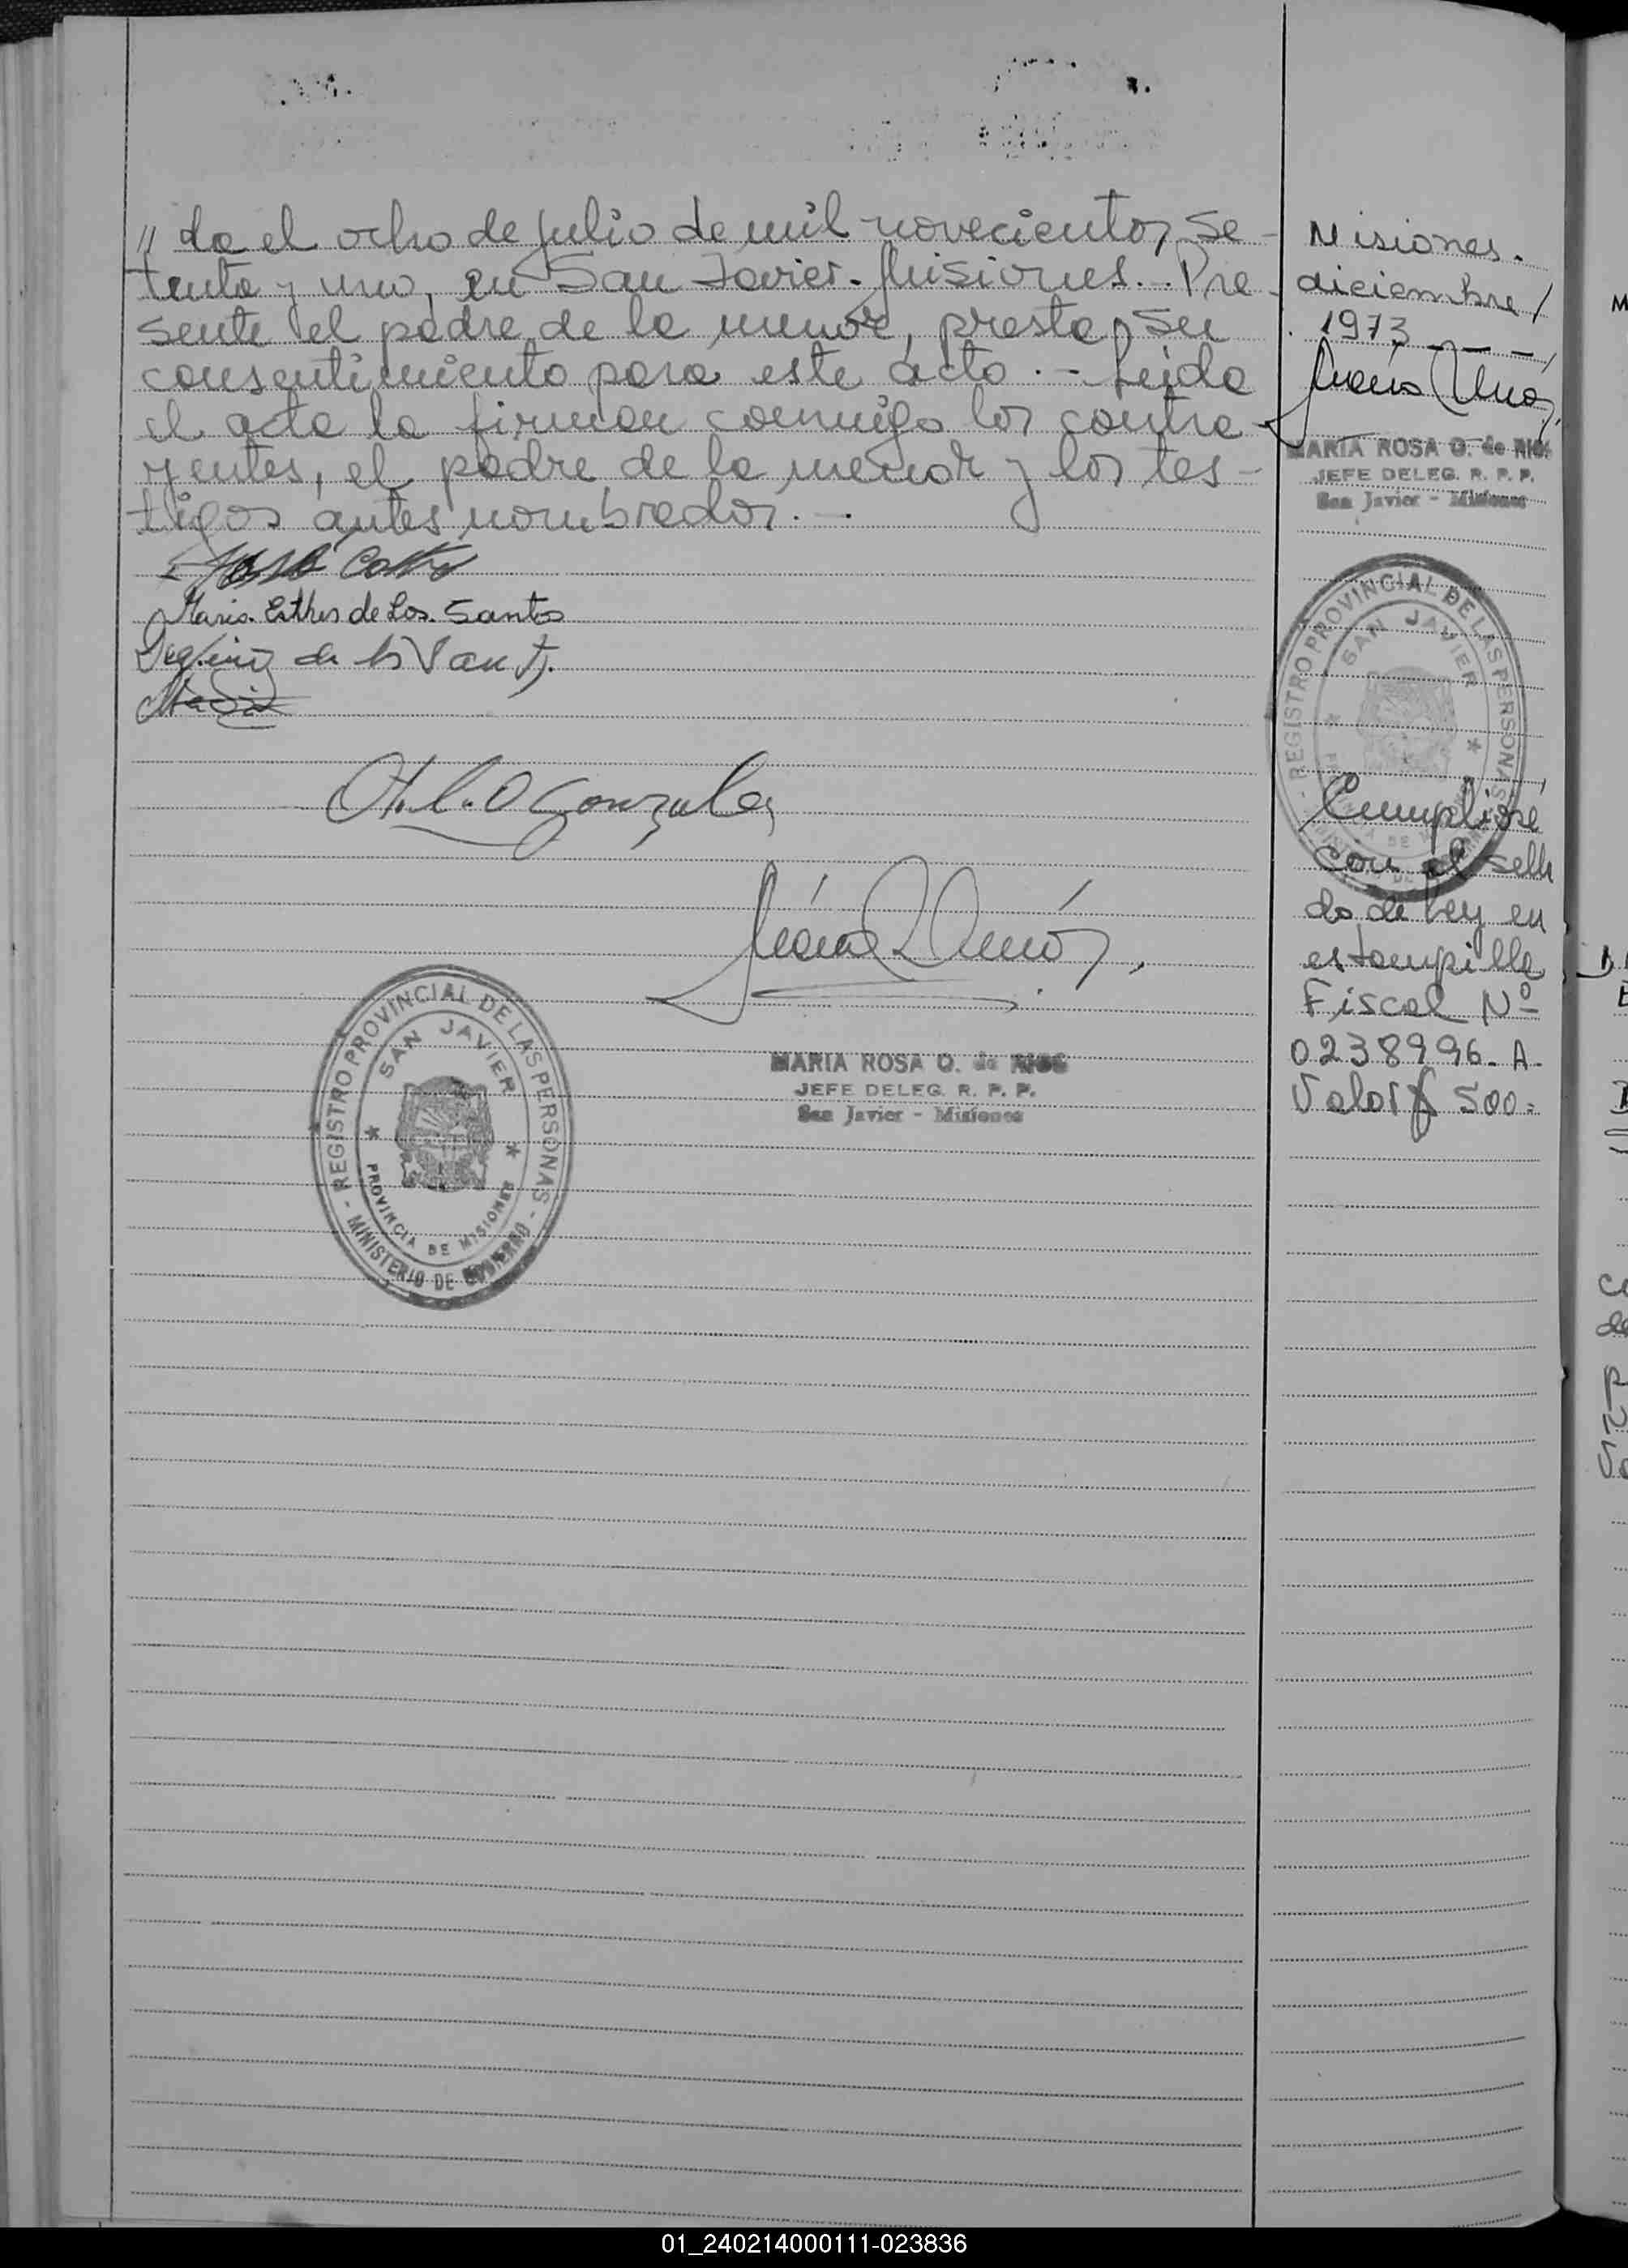 " da el ocho de julio de mil novecientos se-
tenta y uno, en San Javier. Misiones.. Pre-
sente el padre de la menor, presta su
consentimiento para este acto.- Leida
el acta la firman conmigo los contra-
yentes, el padre de la menor y los tes-
tigos antes nombrados.-
Maria Esther de Los Santos
de los Sant
Gonzalez
MARIA ROSA O. de RIOS
JEFE DELEG. R. P. P.
San Javier - Misiones
- REGISTRO PROVINCIAL DE LAS PERSONAS -
SAN JAVIER
PROVINCIA DE MISIONES
MINISTERIO DE GOBIERNO
Misiones.
diciembre/
1973
MARIA ROSA O. de RIOS
JEFE DELEG. R. P. P.
San Javier - Misiones
- REGISTRO PROVINCIAL DE LAS PERSONAS
SAN JAVIER
Cumplióse
con el sella
do de Ley en
estampilla
Fiscal Nº
0238996-A-
Valor $ 500-
01_240214000111-023836